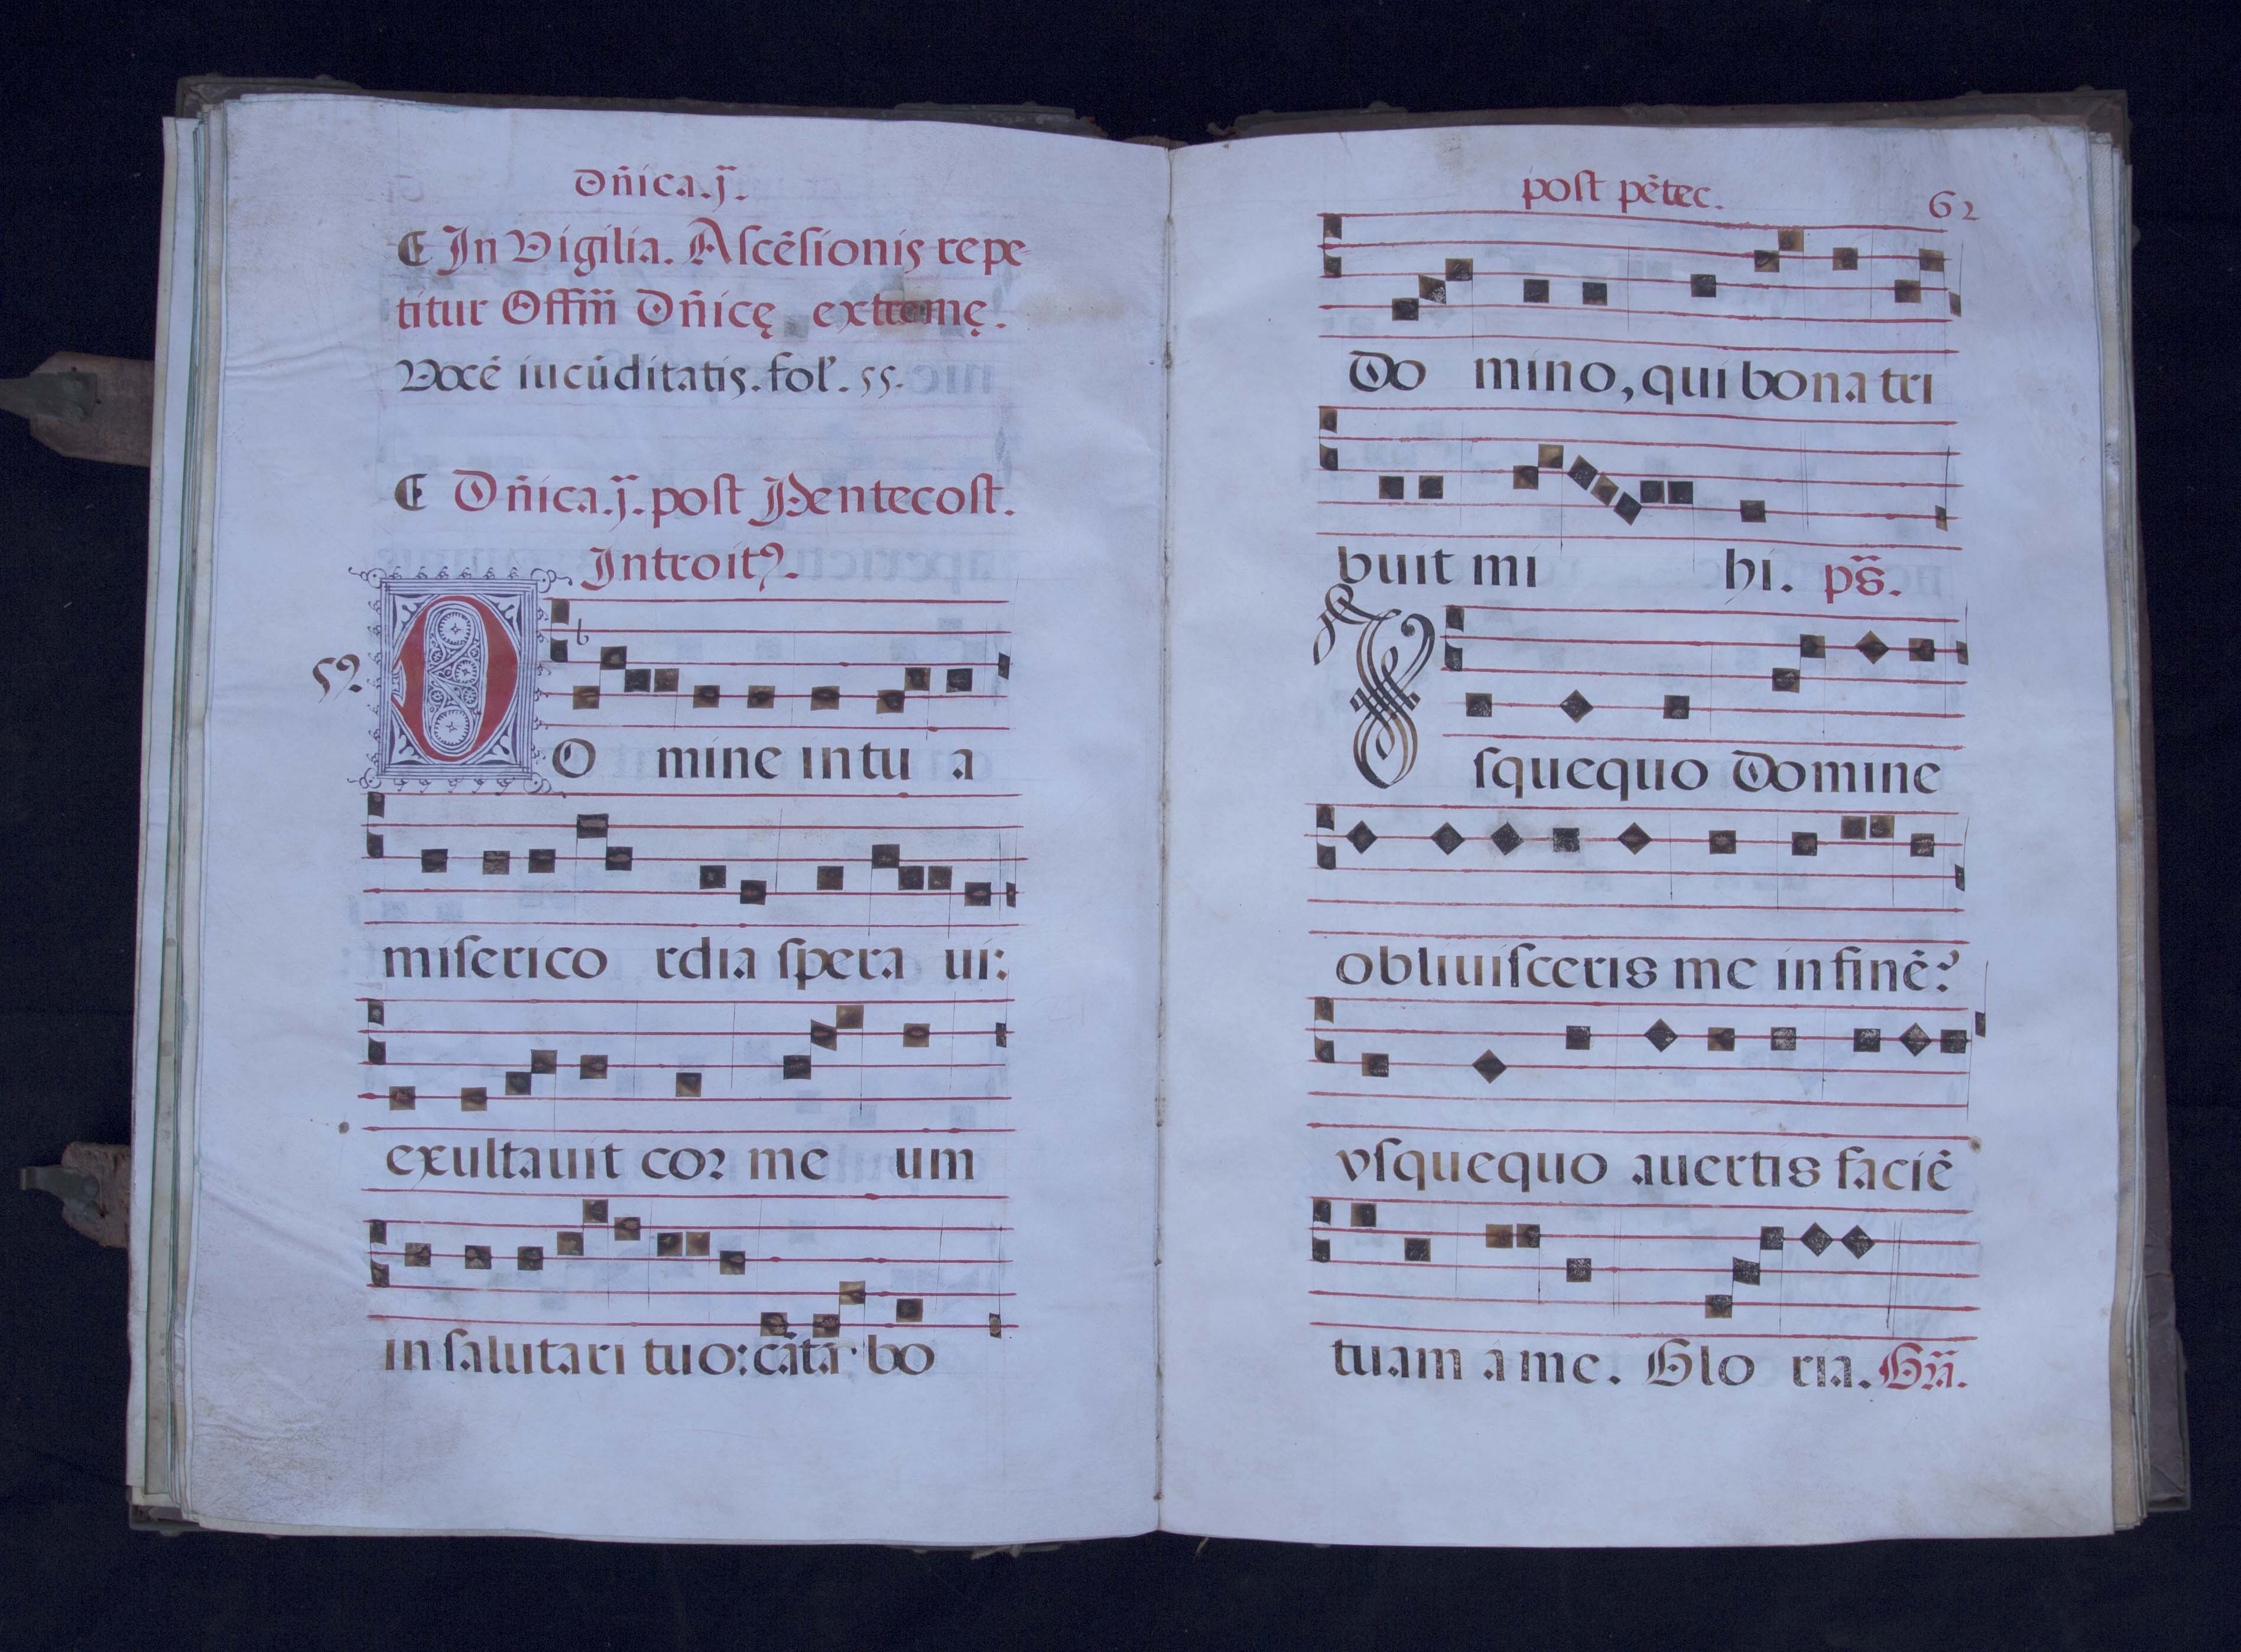 Dñica.j̃.
¶ In Vigilia. Aſcẽſionis repe
titur Offim̃ Dñicę extremę.
Vocẽ iucũditatis. fol. 55.
¶ Dñica.j̃. poſt Pentecoſt.
Introitꝰ.
5ꝰ.
DO mine in tu a
miſerico rdia ſpera ui:
exultauit coꝛ me um
in ſalutari tuo: cãtar bo
poſt pẽtec. 62
Do mino, qui bona tri
buit mi hi. ps̃.
Vſquequo Domine
obliuiſceris me in finẽ?
vſquequo auertis faciẽ
tuam à me. Glo ria. Gr̃a.